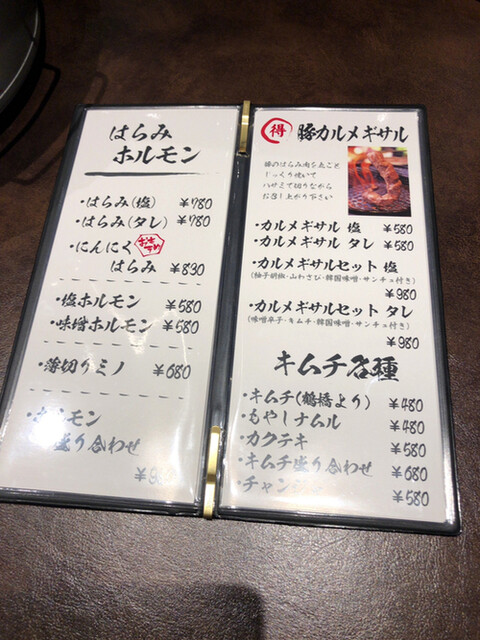 はらみ
ホルモン
・はらみ(塩) ¥780
・はらみ(タレ) ¥780
・にんにく おすすめ
はらみ ¥830
・塩ホルモン ¥580
・味噌ホルモン ¥580
・薄切りミノ ¥680
モン
盛り合わせ
得 豚カルメギサル
豚のはらみ肉を丸ごと
じっくり焼いて
ハサミで切りながら
お召し上がり下さい
・カルメギサル 塩 ¥580
・カルメギサル タレ ¥580
・カルメギサルセット 塩
(柚子胡椒・山わさび・韓国味噌・サンチュ付き)
¥980
・カルメギサルセット タレ
(味噌辛子・キムチ・韓国味噌・サンチュ付き)
¥980
キムチ各種
・キムチ(鶴橋より) ¥480
・もやしナムル ¥480
・カクテキ ¥580
・キムチ盛り合わせ ¥680
・チャン ¥580